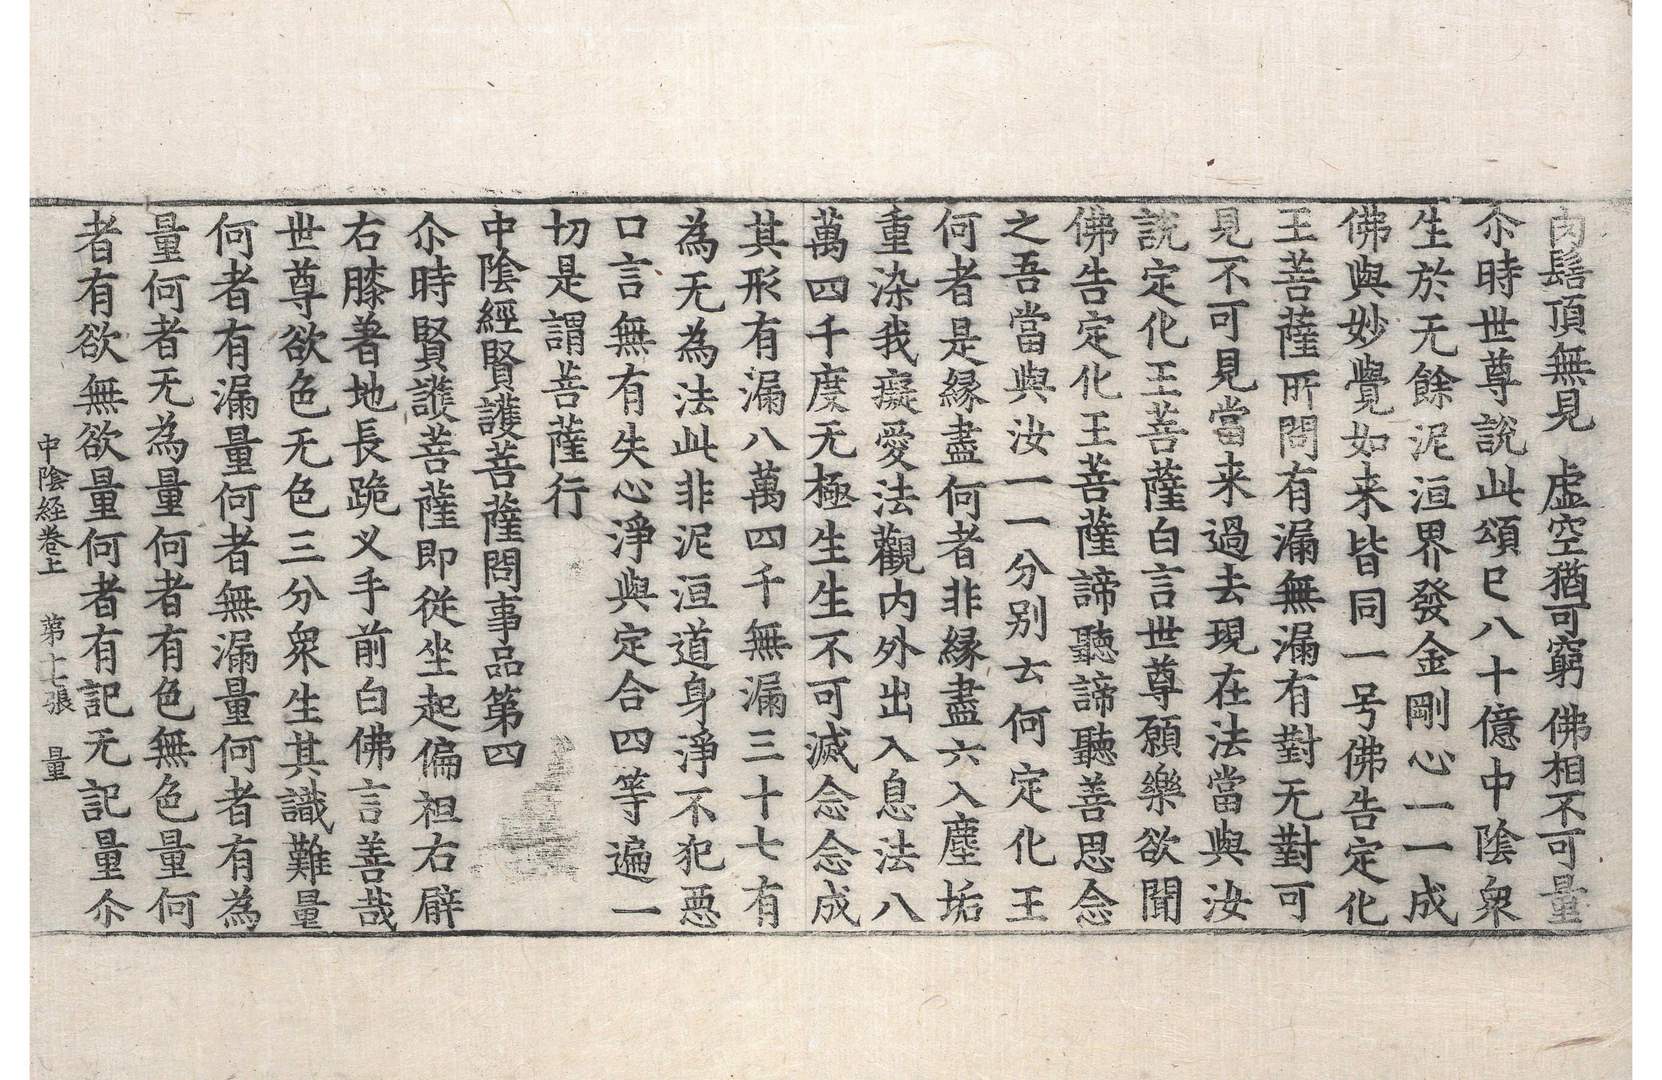 肉髻頂無見　虛空猶可窮佛相不可量
尒時世尊說此頌已八十億中陰衆
生於无餘泥洹界發金剛心一一成
佛與妙覺如来皆同一号佛告定化
王菩薩所問有漏無漏有對无對可
見不可見當来過去現在法當與汝
說定化王菩薩白言世尊願樂欲聞
佛告定化王菩薩諦聽諦聽善思念
之吾當與汝一一分别云何定化王
何者是縁盡何者非縁盡六入塵垢
重染我癡愛法觀内外出入息法八
萬四千度无極生生不可滅念念成
其形有漏八萬四千無漏三十七有
為无為法此非泥洹道身淨不犯惡
口言無有失心淨與定合四等遍一
切是謂菩薩行
中陰經賢護菩薩問事品第四
尒時賢護菩薩即従坐起偏袒右臂
右膝著地長跪叉手前白佛言善哉
世尊欲色无色三分衆生其識難量
何者有漏量何者無漏量何者有為
量何者无為量何者有色無色量何
者有欲無欲量何者有記无記量尒
中陰経卷上　第七張　量